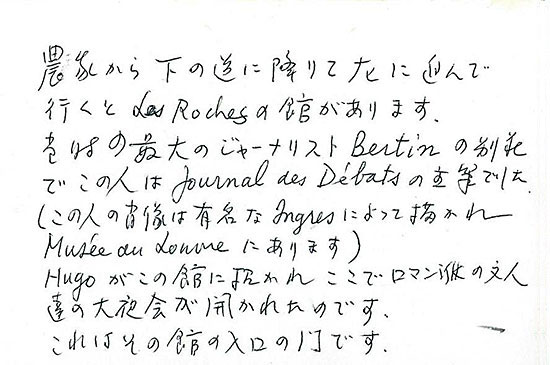 農家から下の道に降りて左に進んで
行くと Les Rochesの館があります.
当時の最大のジャーナリスト Bertin の別荘
でこの人は Journal des Débats の主筆でした
(この人の肖像は有名な Ingres によって描かれ
Musée du Louvre にあります)
Hugo がこの館に招かれ ここでロマン派の文人
達の大夜会が開かれたのです.
これはその館の入口の門です.